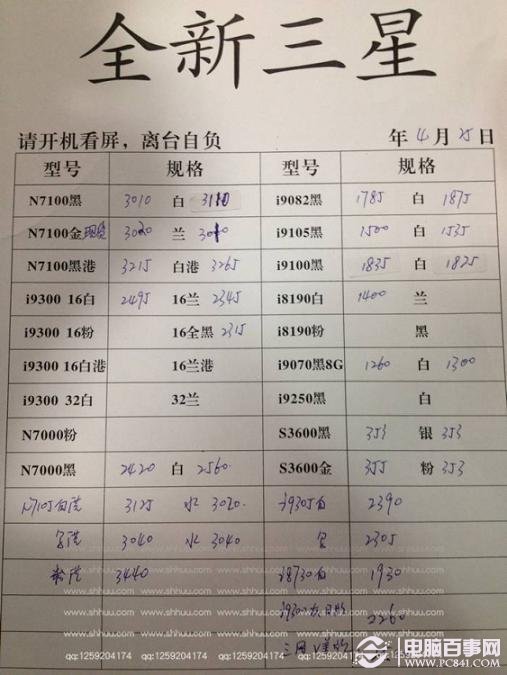 全新三星
请开机看屏，离台自负 年 4 月 25 日
型号 规格 型号 规格
N7100黑 3010 白 3110 i9082黑 1785 白 1875
N7100金 现货 3020 兰 3010 i9105黑 1500 白 1535
N7100黑港 3215 白港 3265 i9100黑 1835 白 1825
i9300 16白 2495 16兰 2345 i8190白 1400 兰
i9300 16粉 16全黑 2315 i8190粉 黑
i9300 16白港 16兰港 i9070黑8G 1260 白 1300
i9300 32白 32兰 i9250黑 白
N7000粉 S3600黑 353 银 353
N7000黑 2420 白 2560 S3600金 355 粉 353
N7105白港 3125 水 3020 i9305白 2390
3040 水 3040 2305
粉港 3440 i8730白 1930
i9300 2260
三网
www.shhuu.com www.shhuu.com www.shhuu.com www.shhuu.com
qq:1259204174 qq:1259204174 qq:1259204174 qq:1259204174
电脑百事网
WWW.PC841.COM